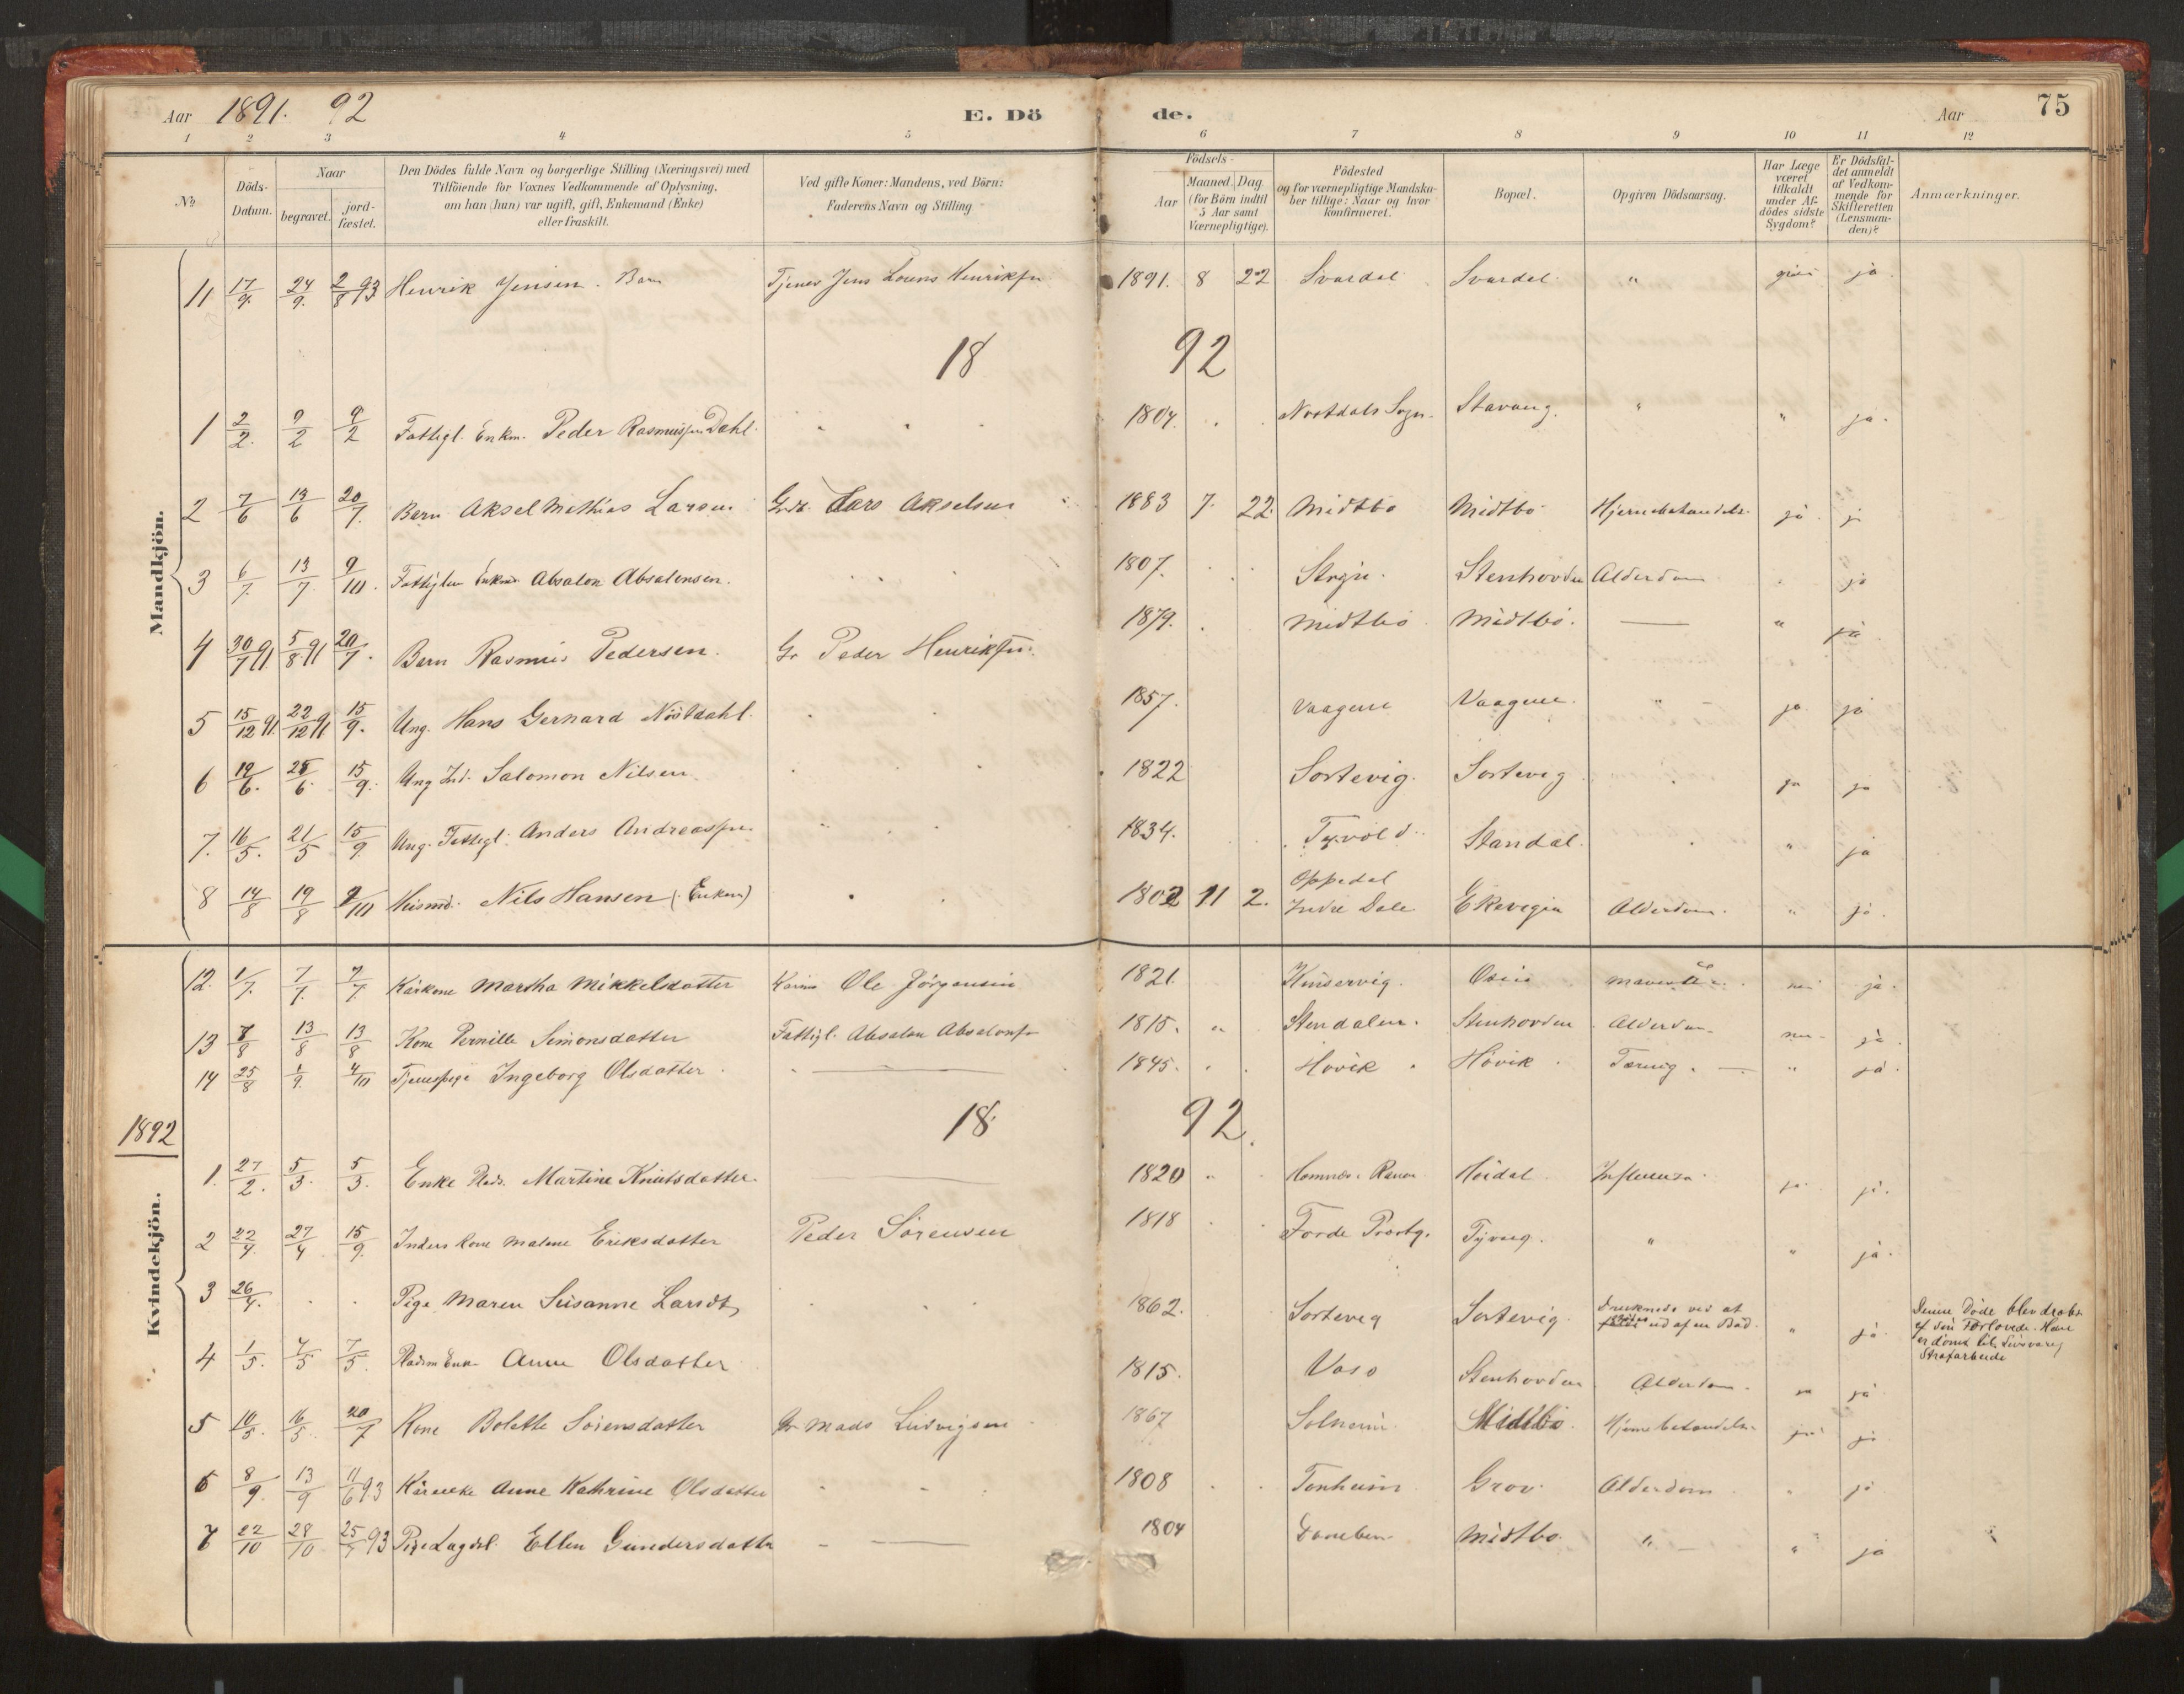 Aar 1891. 92 E. Dö de. Aar 75
1 2 3 4 5 6 7 8 9 10 11 12
No
Döds-Datum.
Naar
begravet.
jord-fæstet.
Den Dödes fulde Navn og borgerlige Stilling (Næringsvei) med
Tilföiende for Voxnes Vedkommende af Oplysning,
om han (hun) var ugift, gift, Enkemand (Enke)
eller fraskilt.
Ved gifte Koner: Mandens, ved Börn:
Faderens Navn og Stilling
Födsels-
Aar
Maaned. Dag
(for Börn indtil
5 Aar samt
Værnepligtige).
Födested
og for værnepligtige Mandska-
ber tillige: Naar og hvor
konfirmeret.
Bopæl.
Opgiven Dödsaarsag.
Har Læge
været
tilkaldt
under Af-
dödes sidste
Sygdom?
Er Dödsfal-
det anmeldt
af Vedkom-
mende for
Skifteretten
(Lensman-
den)?
Anmærkninger.
Mandkjön.
11 17/9. 24/9. 2/8 93 Henrik Jensen. Barn Tjener Jens Henriksen 1891. 8 22 Svardal Svardal " ja
18 92
1 2/2. 9/2 9/2 Fattigl. Enkm. Peder Rasmussen Dahl. 1804. Stavang. " " ja.
2 7/6 13/6 20/7. Barn Aksel Mathias Larsen Lars Akselsen 1883 7. 22. Midtbø Midtbø ja. ja
3 6/7. 13/7. 9/10. Enkm. Absalon Absalonsen. 1807. Stenhovden Alderdom ja
4 30/7 91 5/8 91 20/7. Barn Rasmus Pedersen. Gr Peder Henriksen. 1879. Midtbø Midtbø. — " ja
5 15/12 91. 22/12 91 15/9. Ung. Hans Gernard Nöstdahl. 1857. Vaagene Vaagene. " ja ja
6 19/6. 25/6. 15/9. Ung Ind. Salomon Nilsen 1822 Sortevig. Sortevig ja ja
7. 16/5. 21/5 15/9. Ung. Fattigl. Anders Andreassen. 1834. Standal. " ja
8 14/8 19/8 9/10 Nils Hansen (Enkem) 1802 11 2. Oppedal
Indre Dale Ekevegin Alderdom. " ja.
Kvindekjön.
12. 1/7. 7/7. 7/7 Kårkone Martha Mikkelsdatter Ole Jörgensen 1821. Kindervig. nei ja.
13 8/8 13/8 13/8 Kone Pernille Simonsdatter Fattigl. Absalon Absalons. 1815. " Stendalen. Stenhovden Alderdom nei ja.
14 25/8 1/9. 4/10 Tjenespige Ingeborg Olsdatter. — 1845. Hövik Hövik Tæring. — " ja.
18 92.
1892
1. 27/2. 5/3. 5/3. Enke Martine Knutsdatter. — 1820 " Höidal Influenza. ja. ja.
2 22/4. 27/4 15/9. Inders Kone Malene Eriksdatter Peder Sörensen 1818 Förde Præstg. " " ja.
3 26/4. Pige Maren Susanne Larsdt, 1862. Sortevig Sortevig. Druknede ved at
ud af en Båd. " ja. Denne Døde blev dræbt
af sin Forlovede. Han
er dömt til Livsvarig
Strafarbeide
4 1/5. 7/5 7/5. Anne Olsdatter 1815. Stenhovden Alderdom. ja
5 10/5. 16/5. 20/7 Kone Bolette Sörensdatter Gr. Mads Ludvigsen 1867 Solheim. Midtbø. ja ja
6 8/9. 13/9 11/6 93 Kårenke Anne Kathrine Olsdatter 1808 Tonheim Grov. Alderdom " ja
7 22/10 28/10 25/7 93 Pige Ellen Gundersdatter — 1804 Midtbø. " — " ja